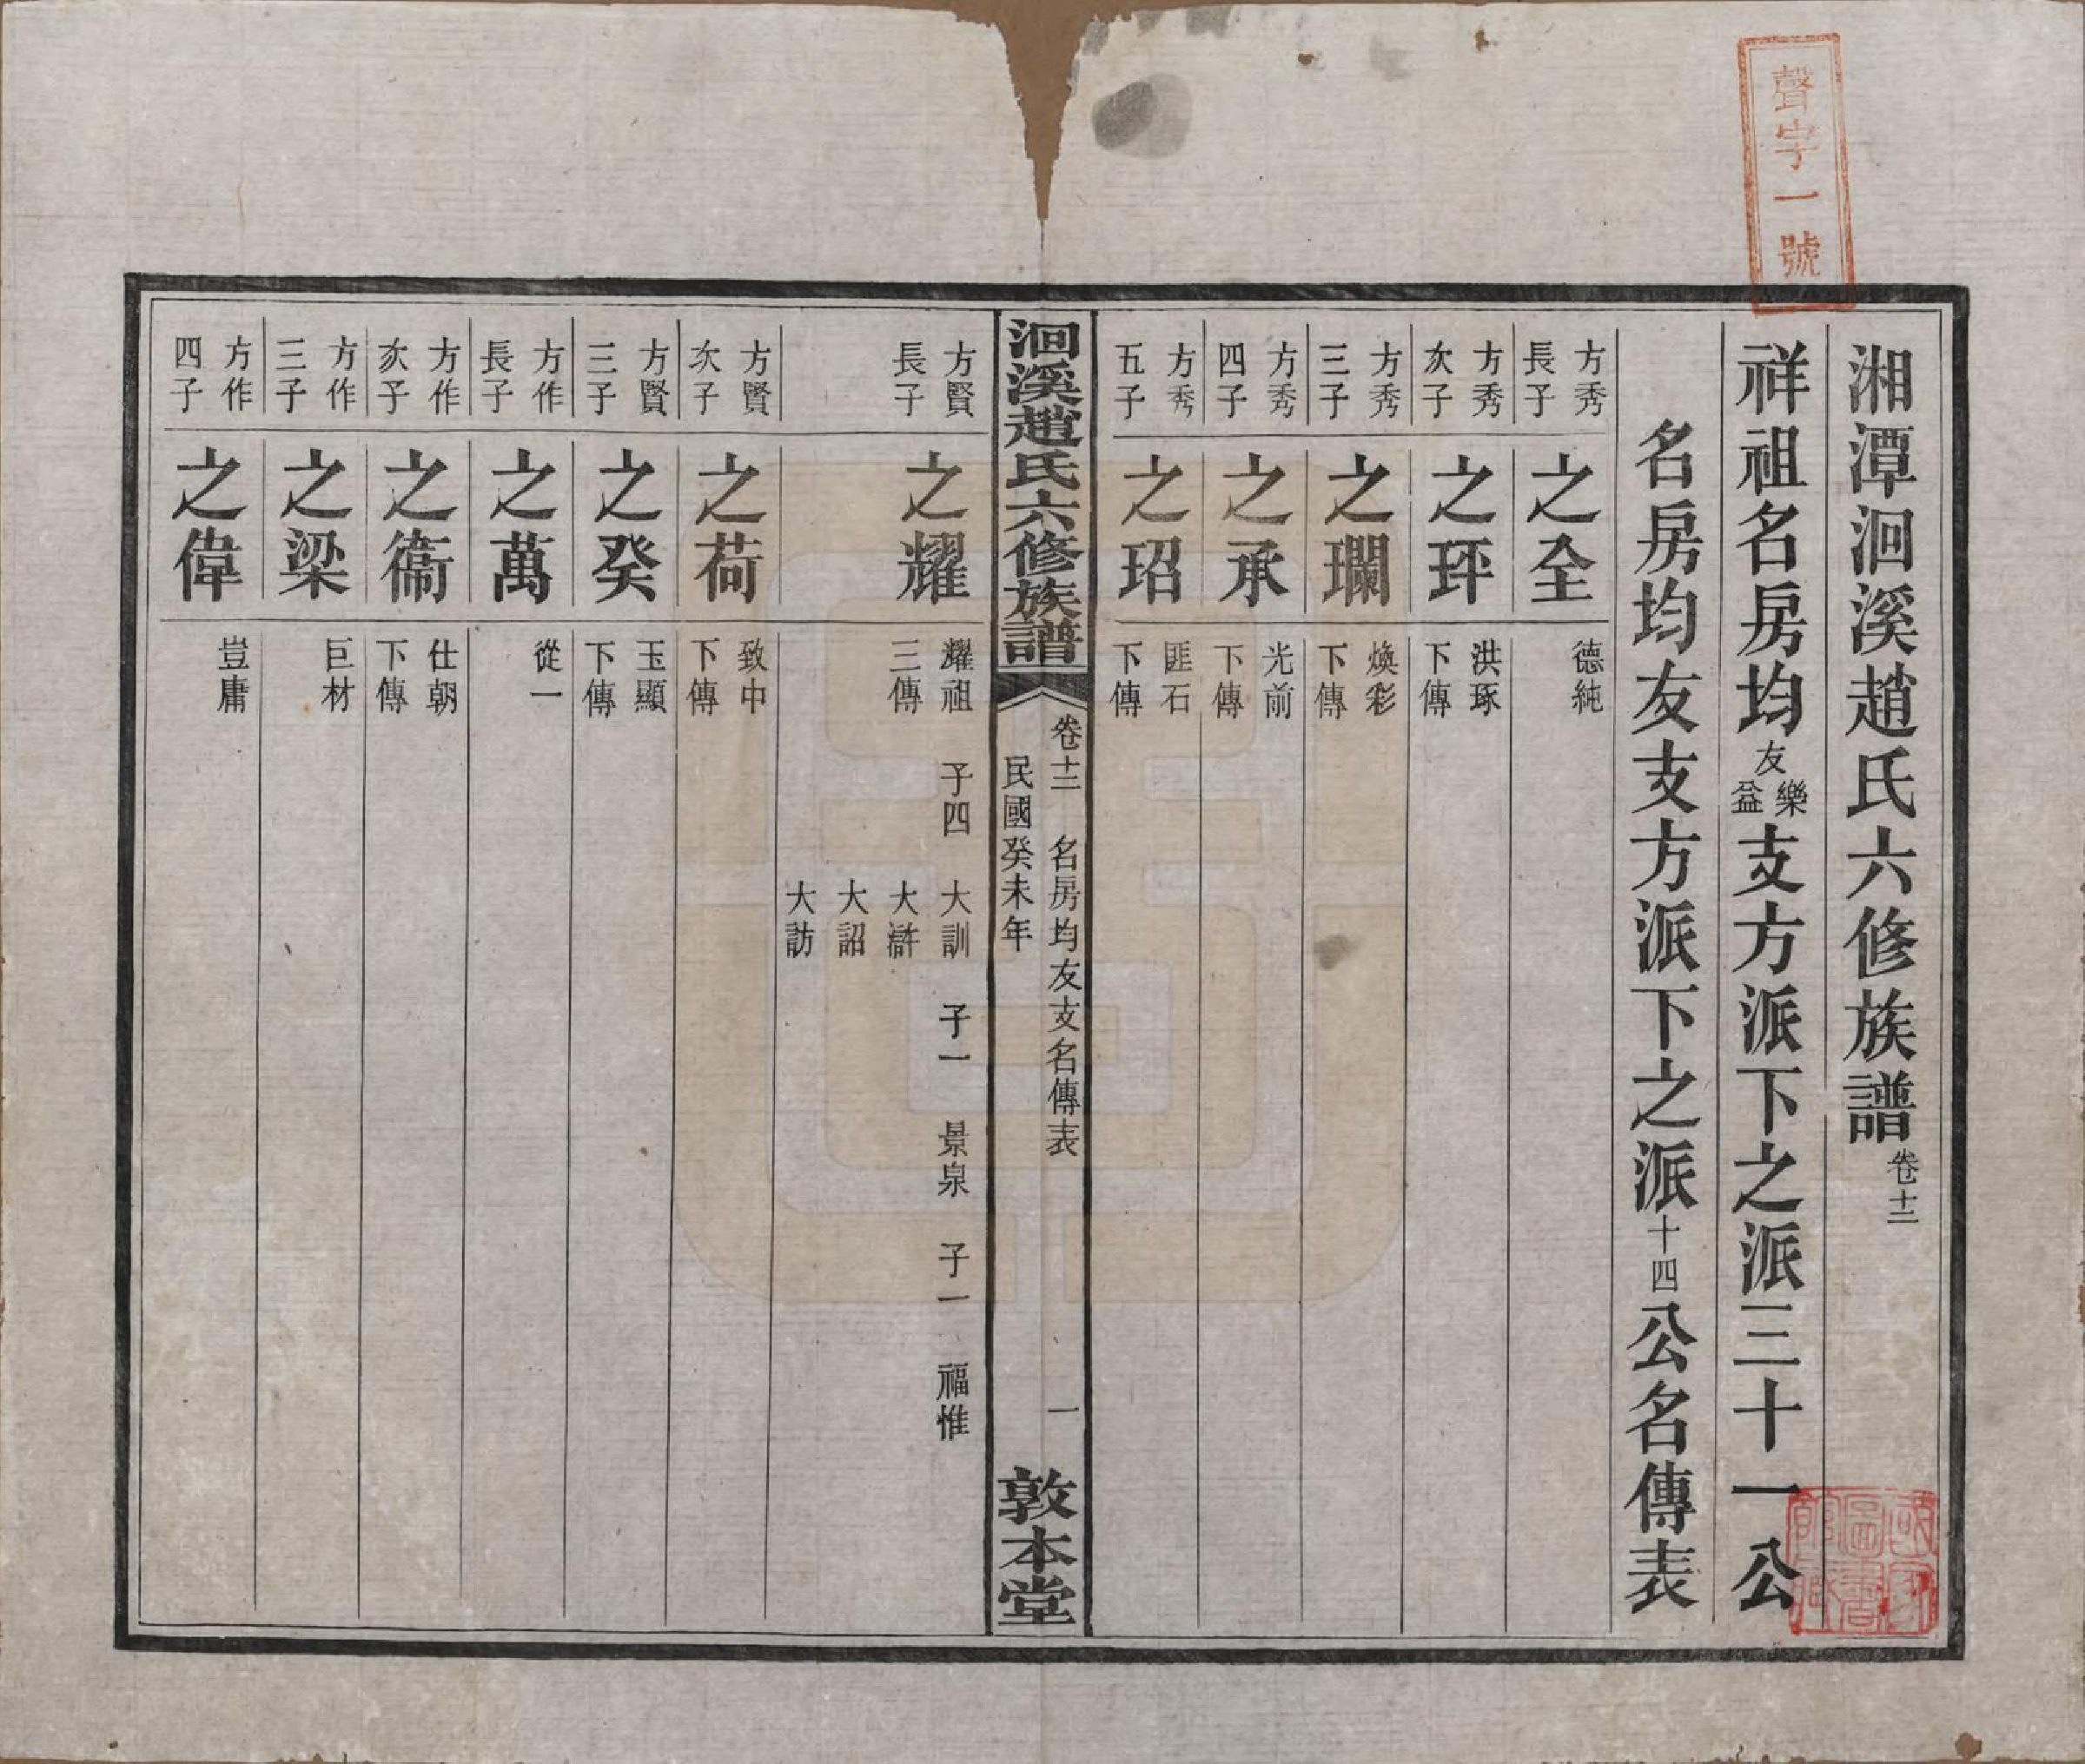 聲字一號
湘潭洄溪趙氏六修族譜 卷十二
祥祖名房均友樂益支方派下之派三十一公
名房均友支方派下之派十四公名傳表
方秀長子 之全 德純
方秀次子 之玶 洪琢 下傳
方秀三子 之瓓 煥彩 下傳
方秀四子 之承 光前 下傳
方秀五子 之玿 匪石 下傳
洄溪趙氏六修族譜 卷十二 名房均友支名傳表 一
民國癸未年 敦本堂
方賢長子 之耀 耀祖 三傳 子四 大訓 子一 景泉 子一 福惟
大滸
大詔
大訪
方賢次子 之荷 致中 下傳
方賢三子 之癸 玉顯 下傳
方作長子 之萬 從一
方作次子 之衞 仕朝 下傳
方作三子 之梁 巨材
方作四子 之偉 豈庸